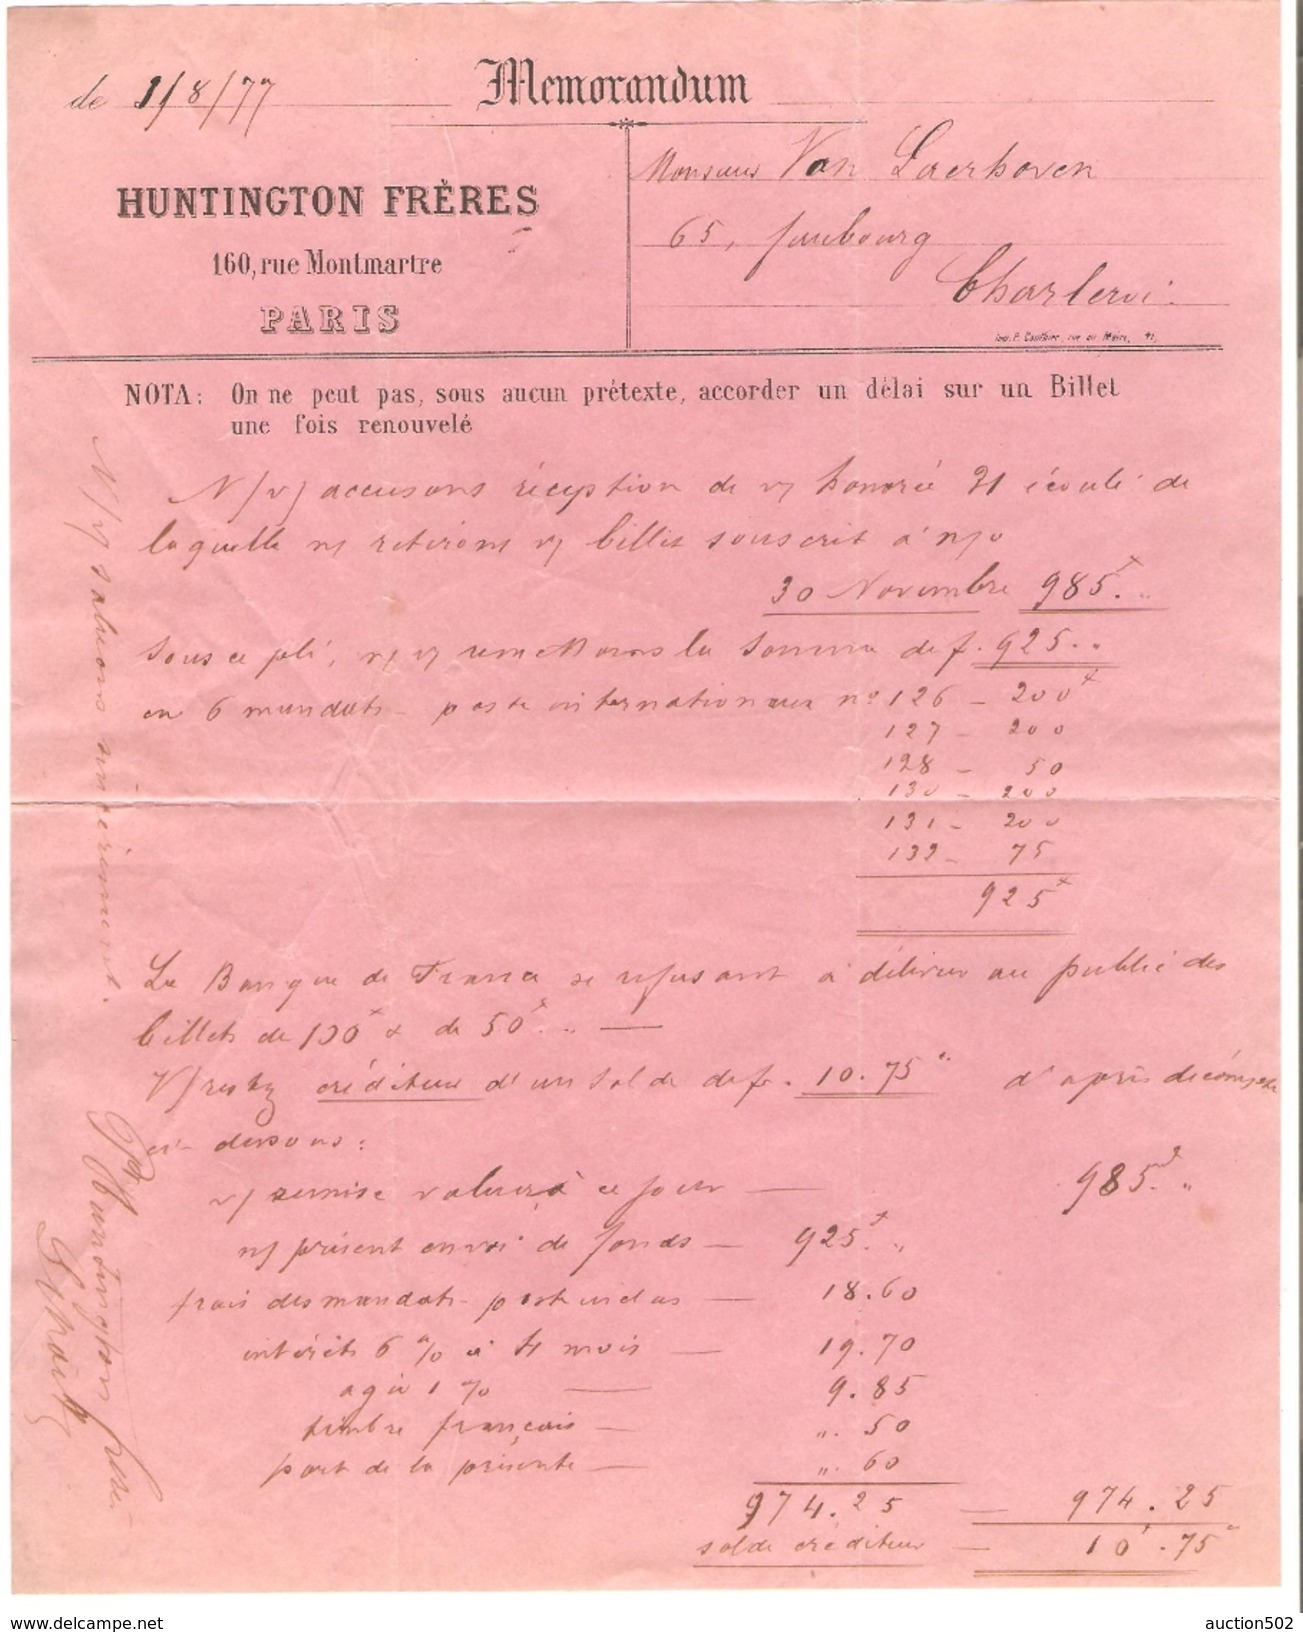 Memorandum
de 1/8/77
HUNTINGTON FRÈRES
160, rue Montmartre
PARIS
Monsieur Van Laerhoven
65, faubourg
Charleroi
Imp. P. Gauthier, rue du Maire, 41,
NOTA: On ne peut pas, sous aucun prétexte, accorder un délai sur un Billet
une fois renouvelé
N/v/ accusons réception de v/ honorée 31 écoulé de
laquelle n/ retirons v/ billet souscrit à n/o
30 Novembre 985.
Sous ce pli, n/ v/ remettons la somme de f. 925..
en 6 mandats poste internationaux no 126 - 200
127 - 200
128 - 50
130 - 200
131 - 200
132 - 75
925
La Banque de France se refusant à délivrer au public des
billets de 100 & de 50
V/ restez créditeur d'un solde de f. 10.75 d'après décompte
ci-dessous:
v/ remise valeur à ce jour — 985.
n/ présent envoi de fonds — 925.
frais des mandats poste inclus — 18.60
intérêts 6 % à 4 mois — 19.70
agio 1 % — 9.85
timbre français — ". 50
port de la présente — ". 60
974.25 — 974.25
solde créditeur — 10.75
N/ v/ saluons sincèrement.
Huntington frères
auction-museum.com
auction502